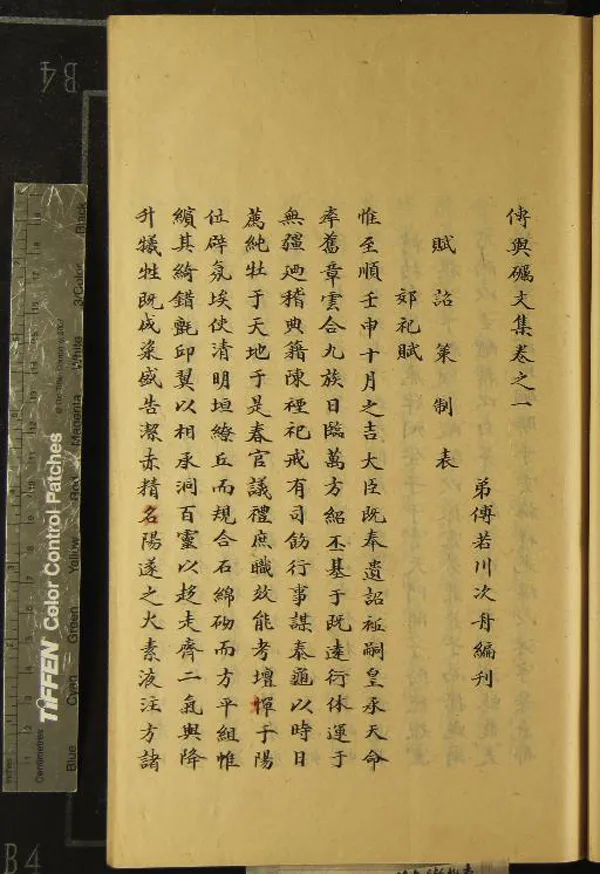 傅與礪文集卷之一
弟傅若川次舟編刊
賦 詔 策 制 表
郊祀賦
惟至順壬申十月之吉大臣既奉遺詔祗嗣皇承天命
率舊章雲合九族日臨萬方紹丕基于既遠衍休運于
無疆廼稽典籍陳禋祀戒有司飭行事謀泰龜以時日
薦純牡于天地于是春官議禮庶職效能考壇墠于陽
位辟氛埃使清明垣繚丘而規合石綿砌而方平組帷
繽其綺錯氈邸翼以相承洞百靈以趍走齊二氣與降
升犧牲既成粢盛告潔赤精名陽遂之火素液注方諸
B4
B4
TIFFEN Color Control Patches
Blue Cyan Green Yellow Red Magenta White 3/Color Black
Inches
Centimetres